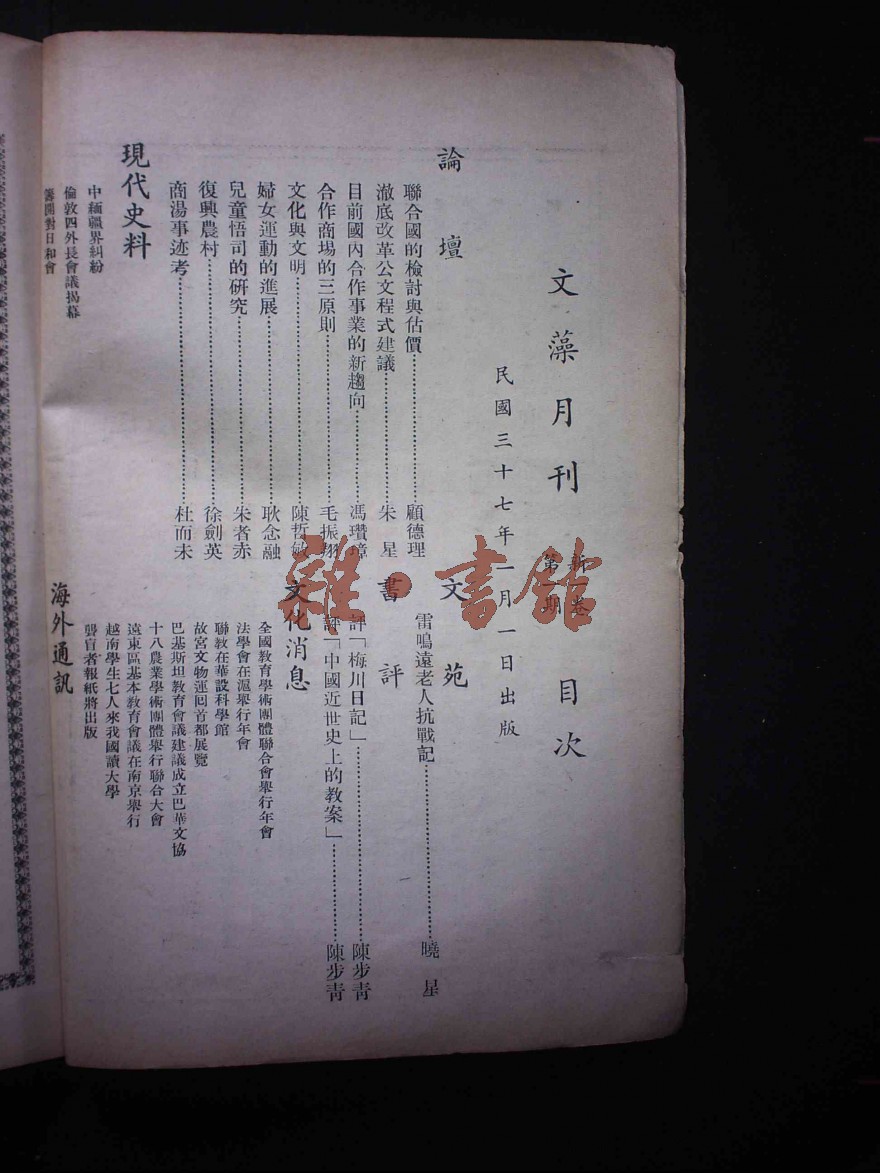 文藻月刊 新一卷 第一期 目次
民國三十七年一月一日出版
論壇
聯合國的檢討與估價 顧德理
澈底改革公文程式建議 朱星
目前國內合作事業的新趨向 馮瓚璋
合作商場的三原則 毛振翔
文化與文明 陳哲敏
婦女運動的進展 耿念融
兒童悟司的研究 朱者赤
復興農村 徐劍英
商湯事迹考 杜而未
現代史料
中緬疆界糾紛
倫敦四外長會議揭幕
籌開對日和會
文苑
雷鳴遠老人抗戰記 曉星
書評
評「梅川日記」 陳步青
評「中國近世史上的教案」 陳步青
文化消息
全國教育學術團體聯合會舉行年會
法學會在滬舉行年會
聯教在華設科學館
故宮文物運回首都展覽
巴基斯坦教育會議建議成立巴華文協
十八農業學術團體舉行聯合大會
遠東區基本教育會議在南京舉行
越南學生七人來我國讀大學
聾盲者報紙將出版
海外通訊
雜·書館